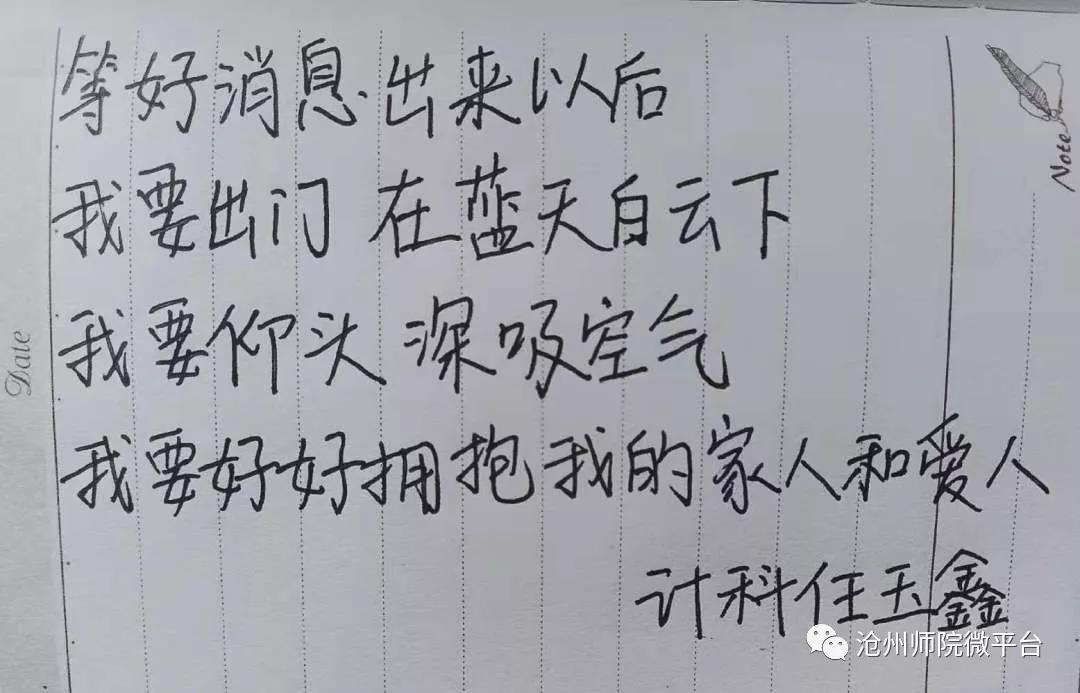 等好消息出来以后
我要出门 在蓝天白云下
我要仰头 深吸空气
我要好好拥抱我的家人和爱人
计科任玉鑫
Date
Note
沧州师院微平台